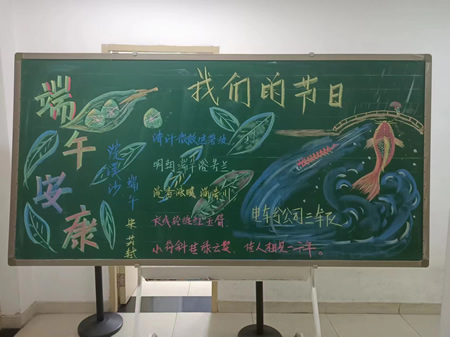 我们的节日
端午安康
浣溪沙 端午
宋 苏轼
轻汗微微透碧纨
明朝端午浴芳兰
流香涨腻满晴川
彩线轻缠红玉臂
小符斜挂绿云鬟,佳人相见一千年。
电车分公司三车队